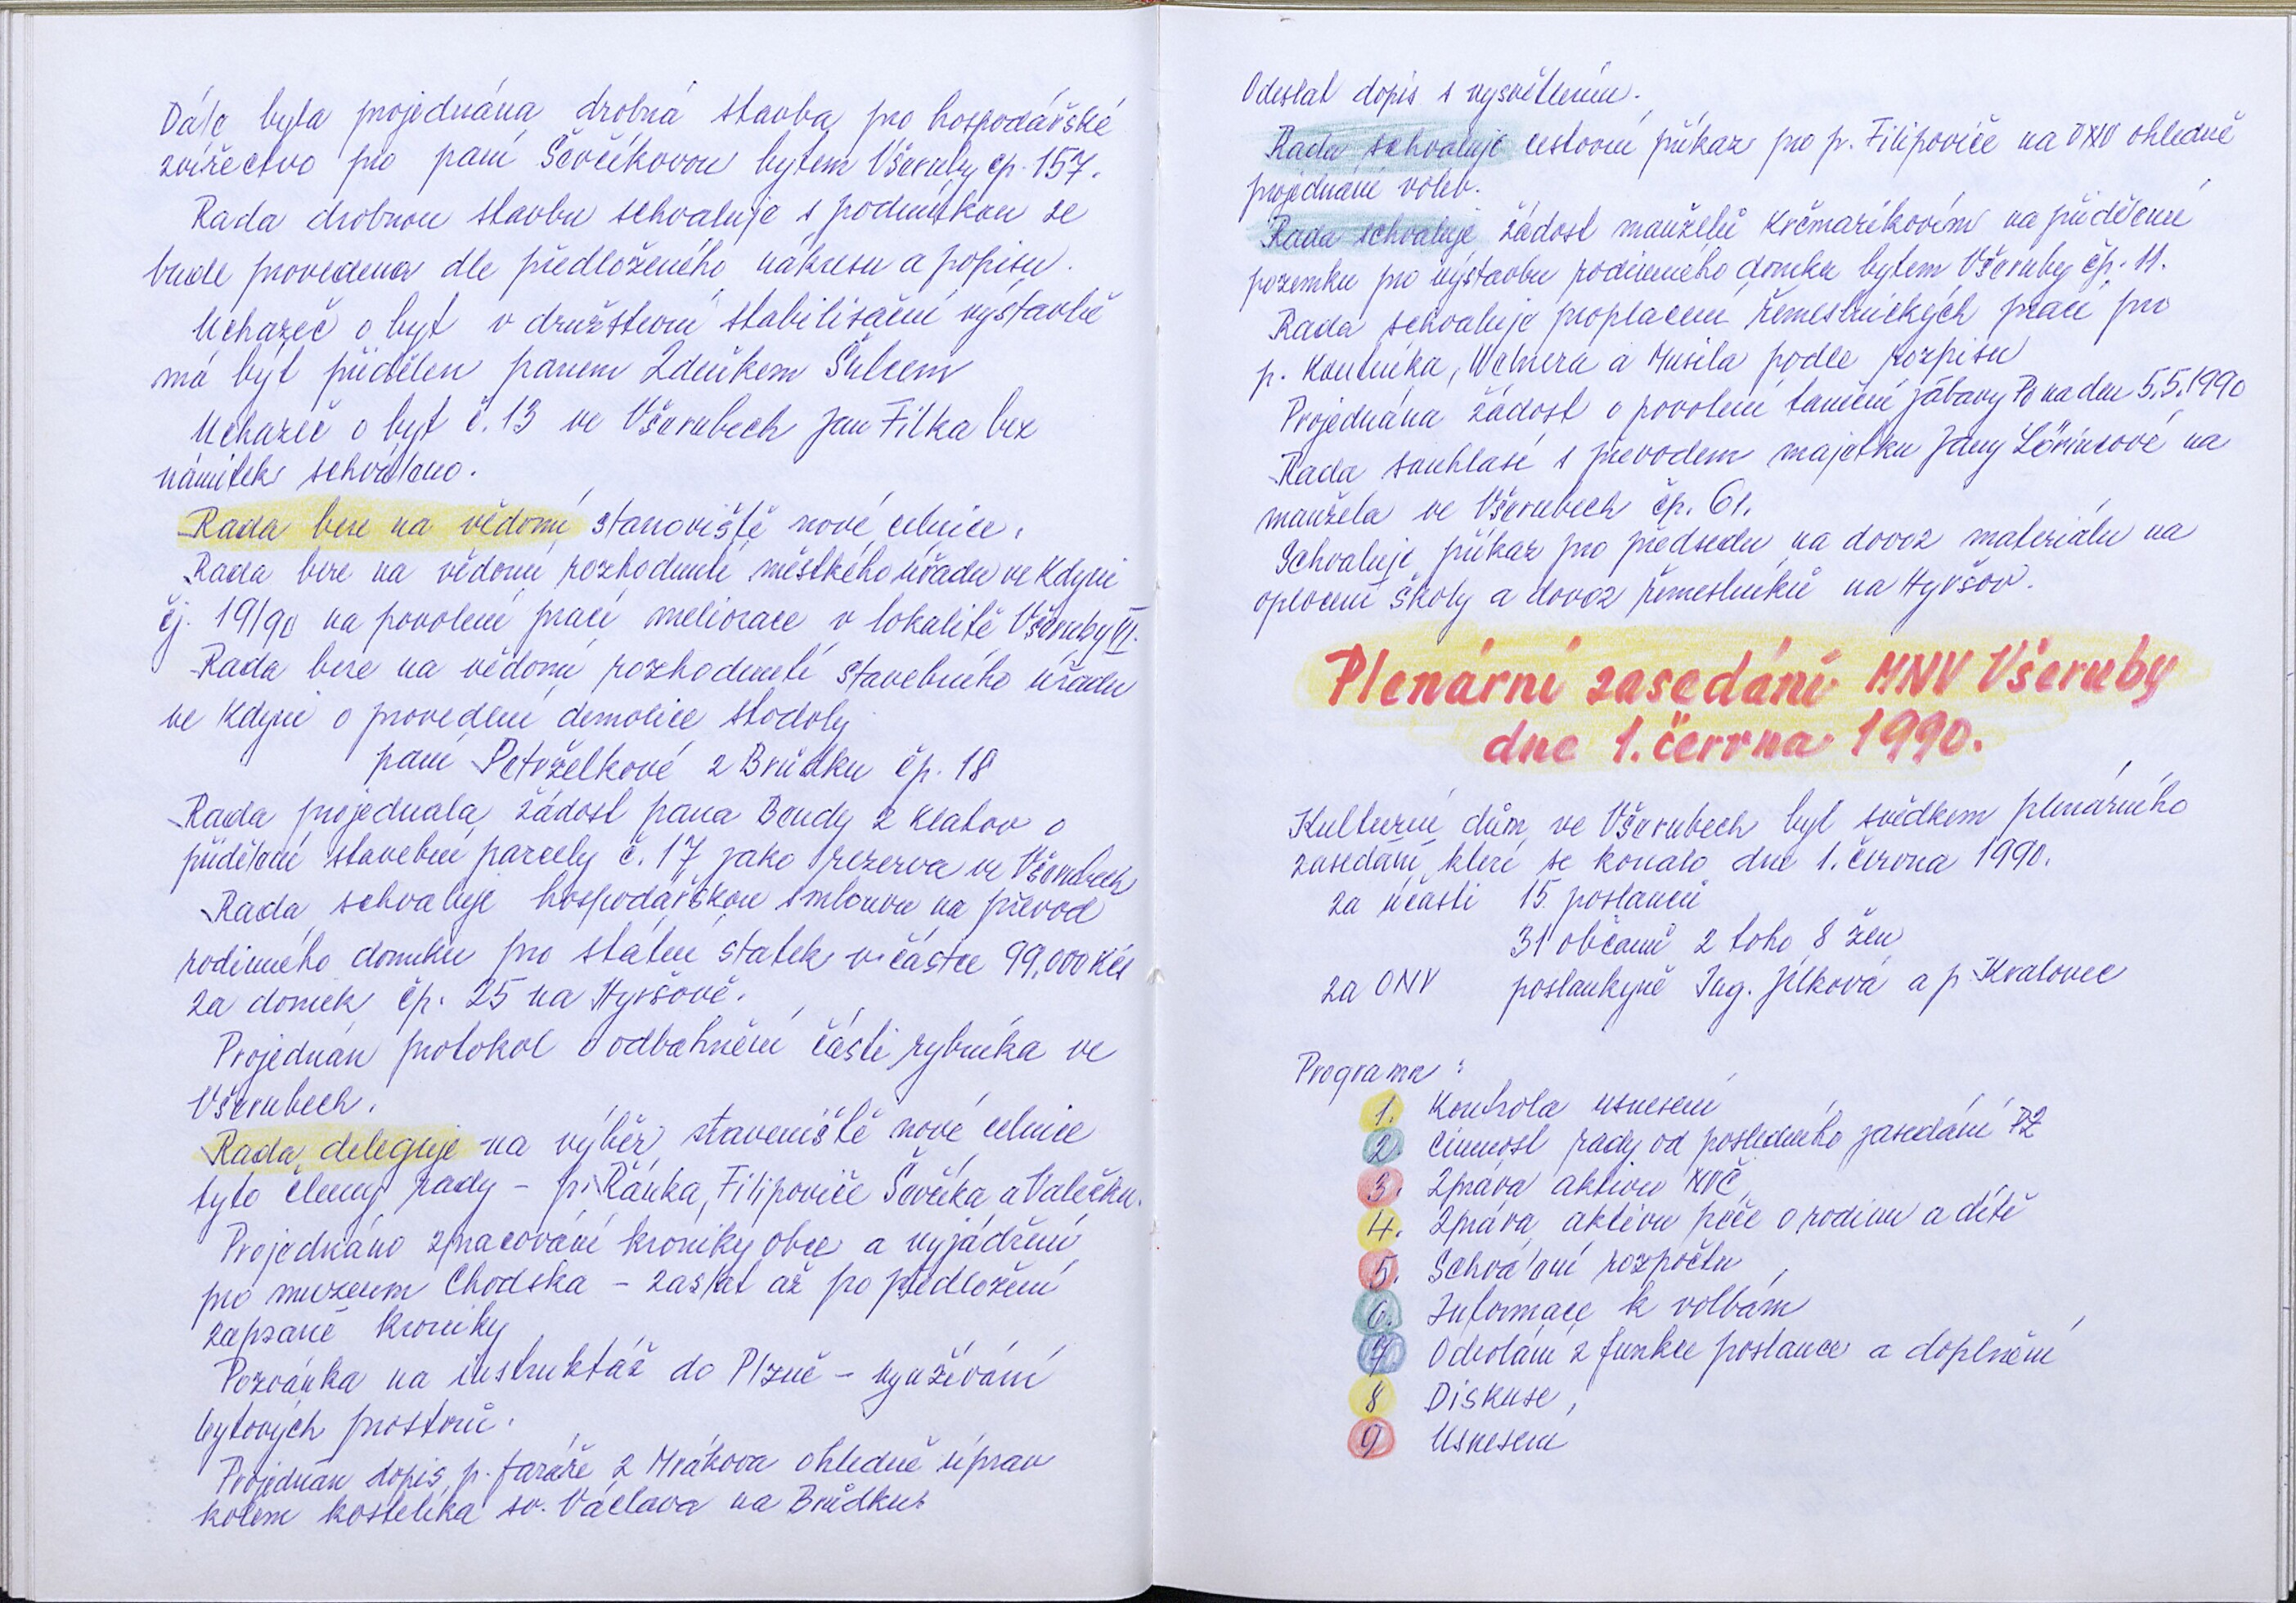 Dále byla projednána drobná stavba pro hospodářské
zvířectvo pro paní Ševčíkovou bytem Všeruby čp. 157.
Rada drobnou stavbu schvaluje s podmínkou že
bude provedena dle předloženého nákresu a popisu.
Uchazeč o byt v družstevní stabilisační výstavbě
má být přidělen panem Zdeňkem Šulcem
Uchazeč o byt č. 13 ve Všerubech Jan Filka bez
námitek schváleno.
Rada bere na vědomí stanoviště nové celnice.
Rada bere na vědomí rozhodnutí městkého úřadu ve Kdyni
čj. 19/90 na povolení prací meliorace v lokalitě Všeruby VI.
Rada bere na vědomí rozhodnutí stavebního úřadu
ve Kdyni o provedení demolice stodoly
paní Petrželkové z Brůdku čp. 18
Rada projednala žádost pana Bendy z Klatov o
přidělení stavební parcely č. 17 jako rezerva ve Všerubech
Rada schvaluje hospodářskou smlouvu na převod
rodinného domku pro státní statek v částce 99.000 Kčs
za domek čp. 25 na Hyršově.
Projednán protokol o odbahnění části rybníka ve
Všerubech.
Rada deleguje na výběr staveniště nové celnice
tyto členy rady - p. Řánka, Filipoviče Ševčíka a Valečku.
Projednáno zpracování kroniky obce a vyjádření
pro muzeum Chodska - zaslat až po předložení
zapsané kroniky
Pozvánka na instruktáž do Plzně - využívání
bytových prostorů.
Projednán dopis p. faráře z Mrákova ohledně úprav
kolem kostelíka sv. Václava na Brůdku.
Odeslat dopis s vysvětlením.
Rada schvaluje cestovní příkaz pro p. Filipoviče na ONV ohledně
projednání voleb.
Rada schvaluje žádost manželů Krčmaříkovím na přidělení
pozemku pro výstavbu rodinného domku bytem Všeruby čp. 11.
Rada schvaluje proplacení řemeslnických prací pro
p. Koutníka, Welnera a Musila podle rozpisu
Projednána žádost o povolení taneční zábavy PO na den 5.5.1990
Rada souhlasí s převodem majetku Jany Lőrincové na
manžela ve Všerubech čp. 61.
Schvaluje příkaz pro předsedu na dovoz materiálu na
oplocení školy a dovoz řemeslníků na Hyršov.
Plenární zasedání MNV Všeruby
dne 1. června 1990.
Kulturní dům ve Všerubech byl svědkem plenárního
zasedání, které se konalo dne 1. června 1990.
za účasti 15 poslanců
31 občanů z toho 8 žen
za ONV poslankyně Ing. Jílková a p. Kralovec
Programe:
1. Kontrola usnesení
2. Cinnost rady od posledního zasedání PZ
3. Zpráva aktivu NVČ
4. Zpráva aktivu péče o rodinu a dítě
5. Schválení rozpočtu
6. Informace k volbám
7 Odvolání z funkce poslance a doplnění
8 Diskuse,
9 Usnesení